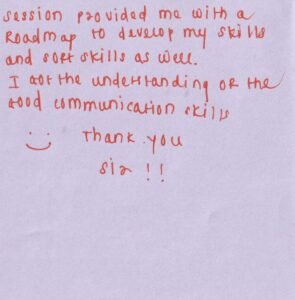 session provided me with a
Roadmap to develop my skills
and soft skills as well.
I got the understanding of the
good communication skills
Thank you
sir !!